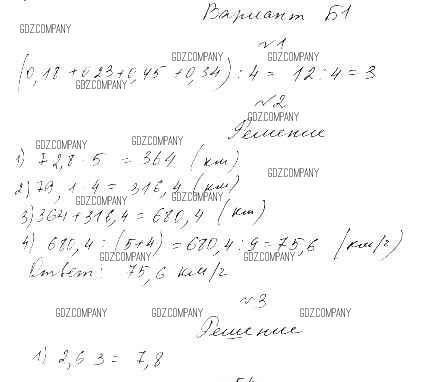 Вариант Б1
GDZ.COMPANY
№1
GDZ.COMPANY GDZ.COMPANY
(0,18 + 0,23 + 0,45 + 0,34) : 4 = 12 : 4 = 3
GDZ.COMPANY
№2
GDZ.COMPANY
Решение
GDZ.COMPANY GDZ.COMPANY
1) 72,8 · 5 = 364 (км)
GDZ.COMPANY
2) 79,1 · 4 = 316,4 (км)
GDZ.COMPANY GDZ.COMPANY
3) 364 + 316,4 = 680,4 (км)
4) 680,4 : (5+4) = 680,4 : 9 = 75,6 (км/г)
GDZ.COMPANY GDZ.COMPANY
Ответ: 75,6 км/г
№3
GDZ.COMPANY GDZ.COMPANY GDZ.COMPANY
Решение
1) 2,6 3 = 7,8